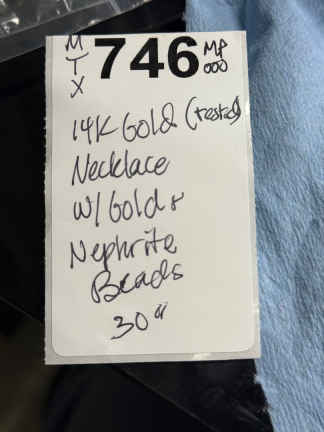 MTX 746 MP 000
14K Gold (tested)
Necklace
W/Gold &
Nephrite
Beads
30"